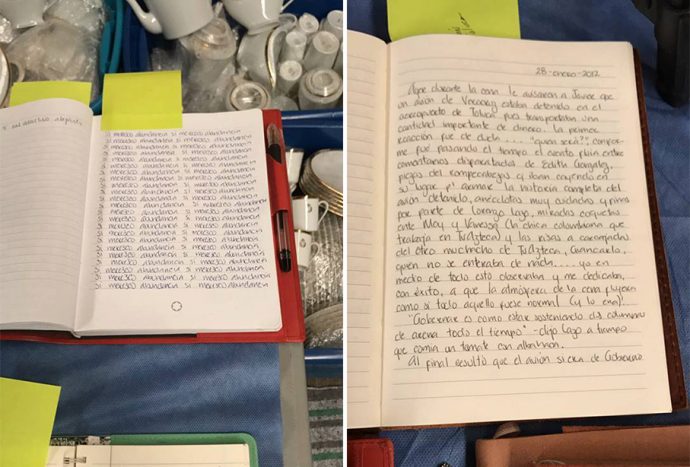 si merezco abundancia si merezco abundancia
si merezco abundancia si merezco abundancia
si merezco abundancia si merezco abundancia
si merezco abundancia si merezco abundancia
si merezco abundancia si merezco abundancia
si merezco abundancia si merezco abundancia
si merezco abundancia si merezco abundancia
si merezco abundancia si merezco abundancia
si merezco abundancia si merezco abundancia
si merezco abundancia si merezco abundancia
si merezco abundancia si merezco abundancia
si merezco abundancia si merezco abundancia
si merezco abundancia si merezco abundancia
si merezco abundancia si merezco abundancia
si merezco abundancia si merezco abundancia
si merezco abundancia si merezco abundancia
si merezco abundancia si merezco abundancia
si merezco abundancia si merezco abundancia
si merezco abundancia si merezco abundancia
28-enero-2012
Ayer durante la cena le avisaron a Javier que
un avión de Veracruz estaba detenido en el
aeropuerto de Toluca pues transportaba una
cantidad importante de dinero. La primera
reacción fue de duda.... "quién será?"; confor-
me fue pasando el tiempo el cuento fluía entre
comentarios disparatados de Edith González,
piezas del rompecabezas q' iban cayendo en
su lugar p' armar la historia completa del
avión detenido, anécdotas muy
por parte de Lorenzo Lago, miradas coquetas
entre May y Vanessa (la chica colombiana que
trabaja en TvAzteca) y las risas a carcajadas
del otro muchacho de TvAzteca, Giancarlo,
quien no se enteraba de nada.... yo en
medio de todo esto observaba y me dedicaba,
con éxito, a que la atmósfera de la cena fluyera
como si todo aquello fuese normal (y lo era)!
"Gobernar es como estar sosteniendo dos columnas
de arena todo el tiempo" - dijo Lago a tiempo
que comía un tomate con
Al final resultó que el avión si era de Gobierno